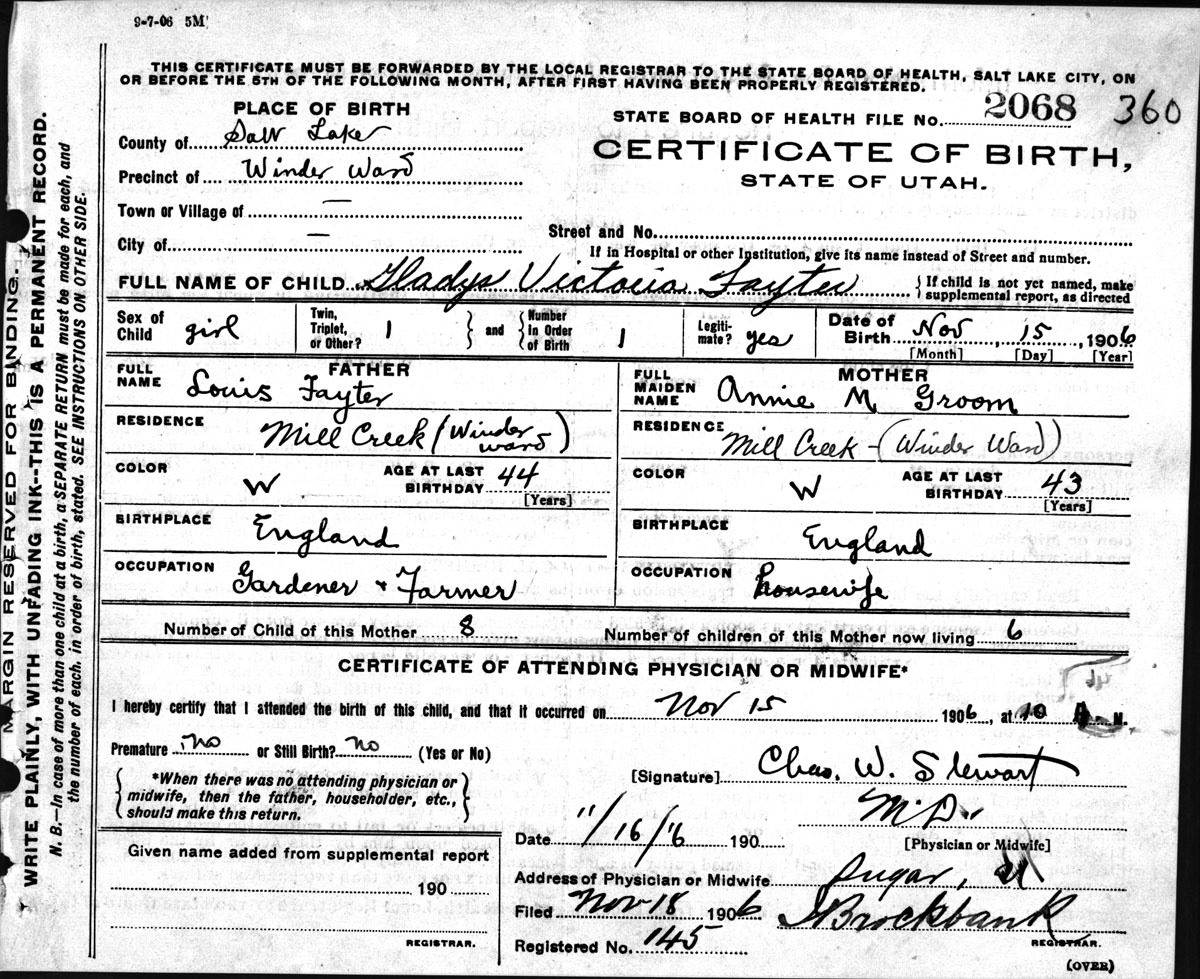 9-7-06 5M
THIS CERTIFICATE MUST BE FORWARDED BY THE LOCAL REGISTRAR TO THE STATE BOARD OF HEALTH, SALT LAKE CITY, ON
OR BEFORE THE 5TH OF THE FOLLOWING MONTH, AFTER FIRST HAVING BEEN PROPERLY REGISTERED.
PLACE OF BIRTH
STATE BOARD OF HEALTH FILE NO. 2068 360
County of Salt Lake
CERTIFICATE OF BIRTH,
Precinct of Winder Ward
STATE OF UTAH.
Town or Village of —
City of —
Street and No.
If in Hospital or other Institution, give its name instead of Street and number.
FULL NAME OF CHILD Gladys Victoria Fayter { If child is not yet named, make
supplemental report, as directed
Sex of Child girl Twin, Triplet, or Other? 1 } and { Number in Order of Birth 1 Legiti-mate? yes Date of Birth Nov 15, 1906
[Month] [Day] [Year]
FATHER
FULL NAME Louis Fayter
RESIDENCE Mill Creek (Winder ward)
COLOR W AGE AT LAST BIRTHDAY 44
[Years]
BIRTHPLACE England
OCCUPATION Gardener & Farmer
MOTHER
FULL MAIDEN NAME Annie M Groom
RESIDENCE Mill Creek - (Winder Ward)
COLOR W AGE AT LAST BIRTHDAY 43
[Years]
BIRTHPLACE England
OCCUPATION housewife
Number of Child of this Mother 8 Number of children of this Mother now living 6
CERTIFICATE OF ATTENDING PHYSICIAN OR MIDWIFE*
I hereby certify that I attended the birth of this child, and that it occurred on Nov 15 1906, at 10 A. M.
Premature no or Still Birth? no (Yes or No)
{ *When there was no attending physician or
midwife, then the father, householder, etc.,
should make this return. }
[Signature] Chas. W. Stewart
M.D.
Date 11/16/6 190
[Physician or Midwife]
Given name added from supplemental report
190
REGISTRAR.
Address of Physician or Midwife Sugar,
Filed Nov 18 1906 Brockbank
Registered No. 145 REGISTRAR.
(OVER)
MARGIN RESERVED FOR BINDING.
WRITE PLAINLY, WITH UNFADING INK--THIS IS A PERMANENT RECORD.
N. B.—In case of more than one child at a birth, a SEPARATE RETURN must be made for each, and
the number of each, in order of birth, stated. SEE INSTRUCTIONS ON OTHER SIDE.